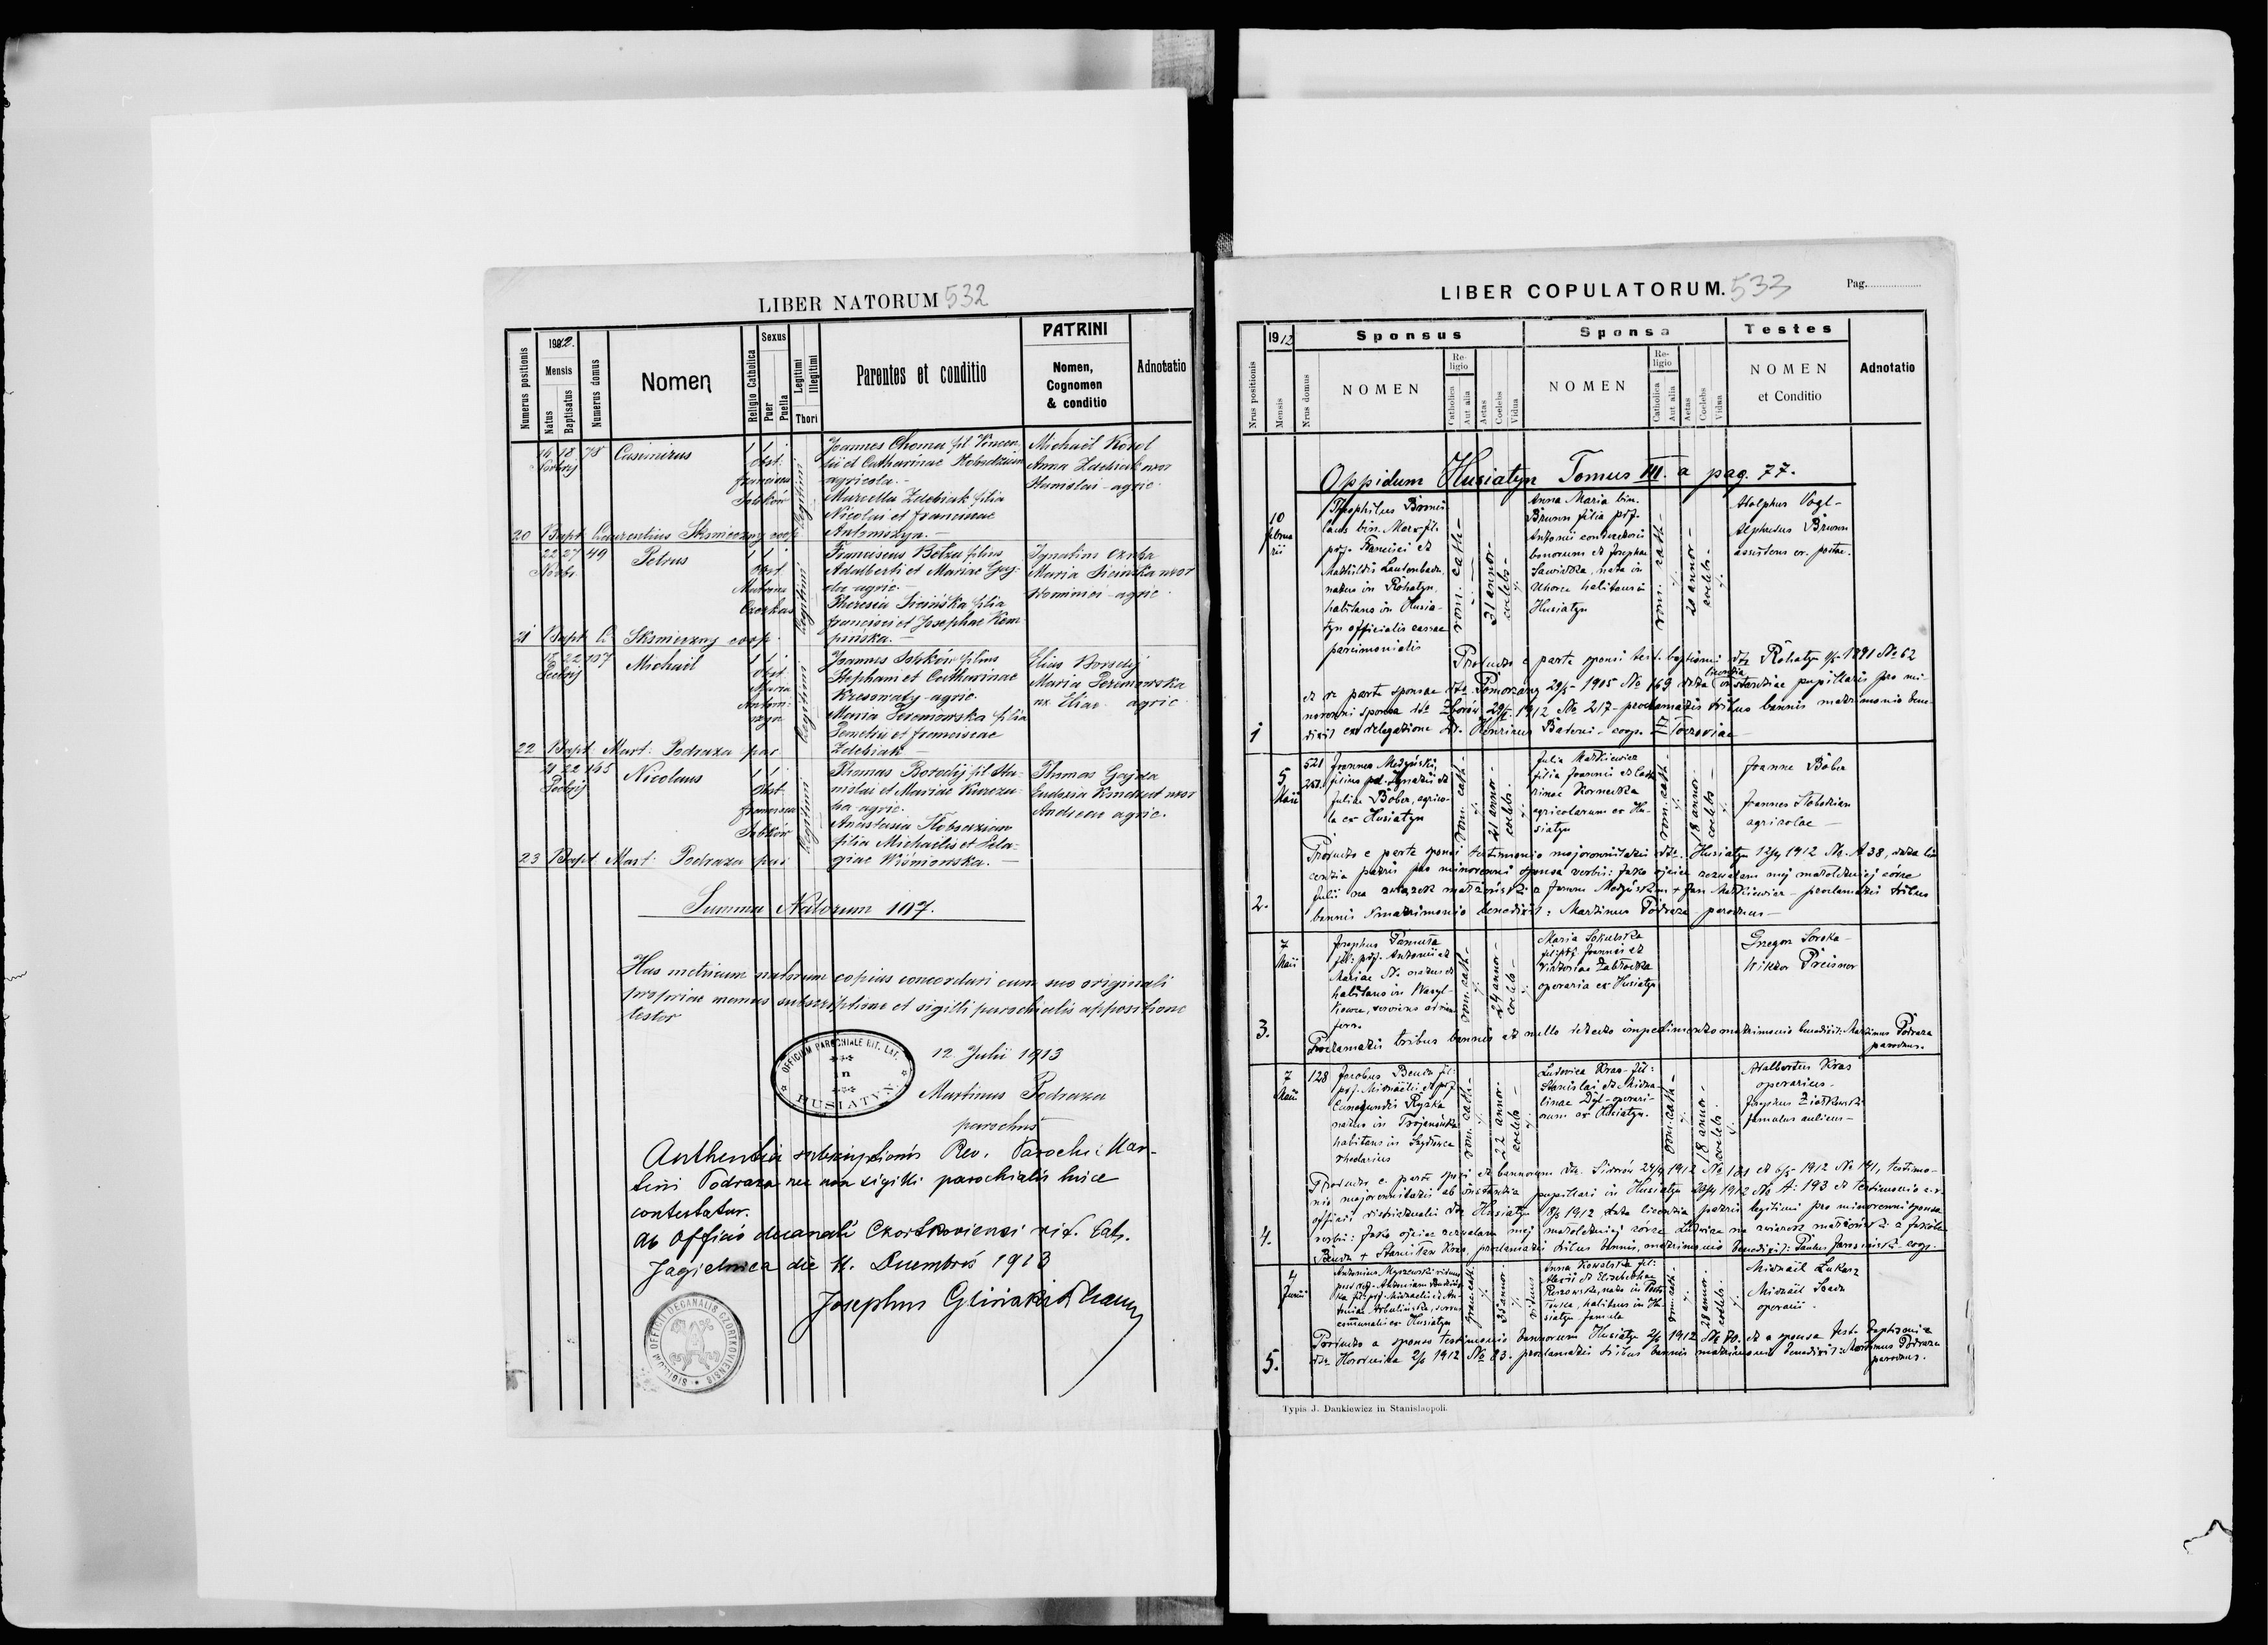 LIBER NATORUM 532
Numerus positionis
1912.
Mensis
Natus
Baptisatus
Numerus domus
Nomen
Religio Catholica
Sexus
Puer
Puella
Legitimi
Illegitimi
Thori
Parentes et conditio
PATRINI
Nomen,
Cognomen
& conditio
Adnotatio
16 18 78 Casimirus 1 1
Obst:
Legitimi
Joannes Choma fil. Vincen
tii et Catharinae
agricola.-
Marcella Zdebiak filia
Nicolai et Franciscae
Michaël Kozol
Anna Zdebiak uxor
Stanislai - agric.
20 Bapt. Laurentius Skśmierzny coop
22 27 49 Petrus 1 1
Obst
Legitimi
Franciscus filius
Adalberti et Mariae Gaj-
da - agric.-
Theresia Sicińska filia
Francisci et Josephae Kem
pińska.-
Ignatius
Maria Sicińska uxor
agric.
21 Bapt. L. coop.
22 107 Michaël 1 1
Obst:
Maria
Legitimi
Joannes Sobków filius
Stephani et Catharinae
agric.
Maria filia
Demetrii et Franciscae
Zdebiak -
Elias Borodij
Maria
ux. Eliae agric
22 Bapt. Mart: Podraza par
21 22 145 Nicolaus 1 1
Obst:
Francisca
Sobków
Legitimi
Thomas Borodij fil. Sta-
nislai et Mariae
agric.
Anastasia Slobodzian
filia Michaëlis et Pela-
giae Wiśniowska.-
Thomas Gajda
Eudoxia uxor
Andreae agric.
23 Bapt Mart: Podraza par
Summa Natorum 107.
Has metricum natorum copias concordari cum suo originali
propriae manus subscriptione et sigilli parochialis appositione
testor
OFFICIUM PAROCHIALE RIT. LAT.
in
HUSIATYN
12. Julii 1913
Martinus Podraza
parochus
Authentia subscriptionis Rev. Parochi: Mar-
tini Podraza nec non sigilli parochialis hisce
contestatur.
Ab Officio decanali Czortkoviensi rit. lat.
Jagielnica die 11. Decembris 1913
Josephus Gliński
SIGILLUM OFFICII DECANALIS CZORTKOVIENSIS
LIBER COPULATORUM. 533
Pag.
Nrus positionis
1912
Mensis
Nrus domus
Sponsus
NOMEN
Religio
Catholica
Aut alia
Aetas
Coelebs
Vidua
Sponsa
NOMEN
Religio
Catholica
Aut alia
Aetas
Coelebs
Vidua
Testes
NOMEN
et Conditio
Adnotatio
Oppidum Husiatyn Tomus III. a pag. 77.
10
februa
rii
Theophilus
laus bin. Marx fil.
Francisci et
Mathildis Lautenbach,
natus in Rohatyn,
habitans in Husia-
tyn officialis cassae
parcimonialis
rom. cath -
31 annor -
coelebs -
Anna Maria bin.
Brunn filia
Antonii
bonorum et Josephae
Sawicka, nata in
habitans in
Husiatyn
rom. cath -
20 annor -
coelebs -
Adolphus Vogl -
Alphredus Brunn
assistens
Producto e parte sponsi test. baptismi dto Rohatyn 1891 No 62
et e parte sponsae dto Pomorzany 29/5 - 1905 No 169 data licentia instantiae pupillaris pro mi
norenni sponsa dto Zborów 1912 No 217 - proclamatis tribus bannis matrimonio bene-
dixit ex delegatione Henricus Badeni - coop.
1
5
Maii
521
Joannes
filius Ignatii et
Juliae Bober, agrico-
la ex Husiatyn
rom. cath -
21 annor -
coelebs -
Julia Matkiewicz
filia Joannis et Catha
rinae
agricolarum ex Hu-
siatyn
rom. cath -
18 annor -
coelebs -
Joanne Bober
Joannes Slobodzian
agricolae -
Producto e parte sponsi testimonio majorennitatis dto. Husiatyn 12/4 1912 No. A 38, data li
centia patris pro minorenni sponsa verbis: Jako ojciec zezwalam mej małoletniej córce
Julii na związek małżeński z Janem + Jan Matkiewicz - proclamatis tribus
bannis matrimonio benedixit: Martinus Podraza - parochus -
2.
7
Maii
Josephus
fil: Antonii et
Mariae N. natus et
habitans in Wasyl-
kowce,
rom. cath -
24 annor -
coelebs -
Maria Sokulska
fil. Joannis et
Victoriae Zabłocka
operaria ex Husiatyn
Gregor Soroka -
Wiktor Preisner
3.
Proclamatis tribus bannis et nullo detecto impedimento matrimonio benedixit: Martinus Podraza
parochus.
7
Maii
128
Jacobus Benda fil:
Michaëlis et
Cunegundis
natus in Trojanówka
habitans in
rhedarius
rom. cath -
22 annor -
coelebs -
Ludovica Kras - fil:
Stanislai et Micha-
linae Dyl - operari-
orum ex Husiatyn.
rom. cath -
18 annor -
coelebs -
Adalbertus Kras
operarius -
Josephus Ziółkowski
famulus aulicus -
Producto e parte sponsi et bannorum dto. Sidorów 24/4 1912 No 181 et 6/5 - 1912 No 191, testimo-
nio majorennitatis ab instantia pupillari in Husiatyn 1912 No A: 193 et testimonio
officii districtualis dto Husiatyn 18/3 1912 data licentia patris legitimi pro minorenni sponsa
verbis: Jako ojciec zezwalam mej małoletniej córce Ludwice na związek małżeński z Jakóbem
Benda + Stanisław Kras, proclamatis tribus bannis, matrimonio benedixit: Paulus coop.
4.
4
Junii
Antonius Myszewski viduus
Antoniam
Michaëlis et An-
toniae
communalis ex Husiatyn
graec. cath.
35 annor.
viduus
Anna Kowalska fil:
Alexii et Elisabethae
nata in
habitans in Hu-
siatyn famula
rom. cath.
28 annor.
coelebs.
Michaël Łukasz
Michaël
operarii -
Producto a sponso testimonio bannorum Husiatyn 2/6 1912 No 70. et a sponsa test. baptismi a
dto. Horodnica 2/6 1912 No 83. proclamatis tribus bannis matrimonio benedixit: Martinus Podraza
parochus.
5.
Typis J. Dankiewicz in Stanislaopoli.